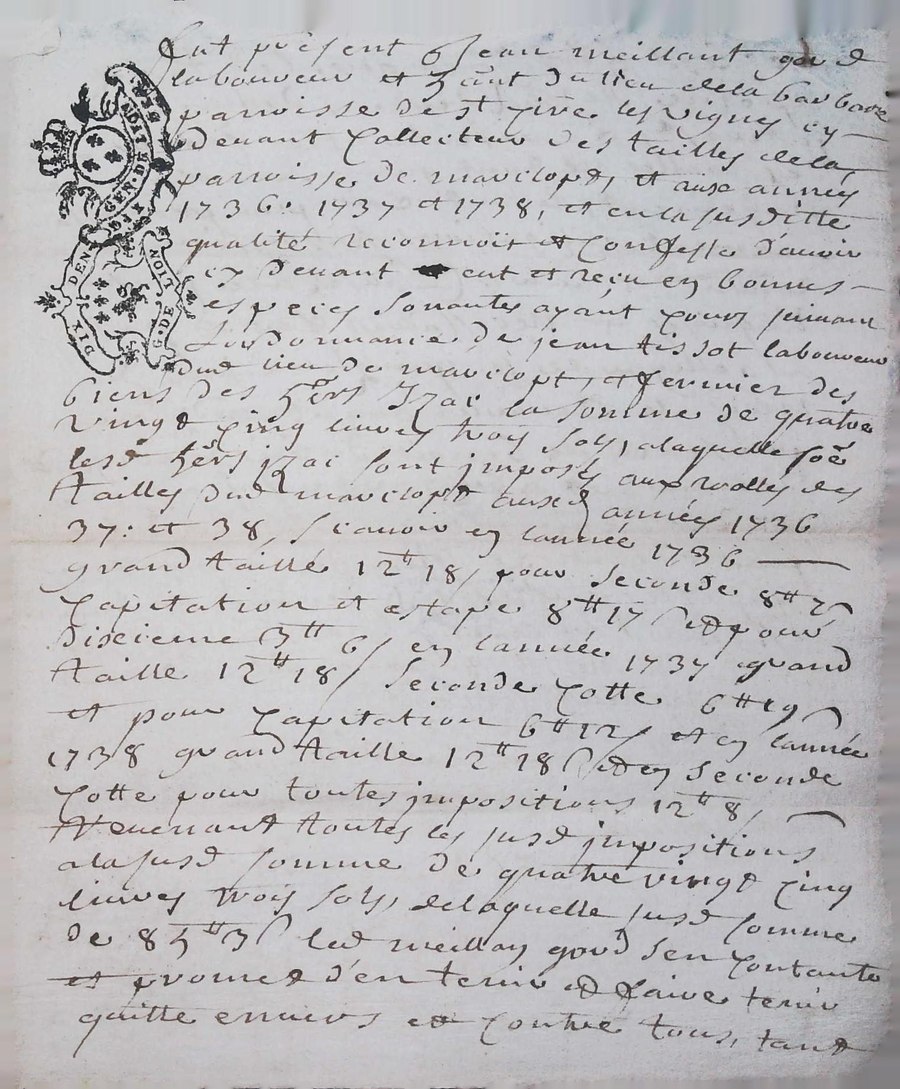 DIX DEN
G. DE NOIT
GER. DE
fut présent Sr Jean meillant govd
laboureur et hant du lieu de la barbare
parroisse de st pire les vignes cy
devant Collecteur des tailles de la
parroisse de marclopt, et aux années
1736: 1737 et 1738, et en la susditte
qualité reconnoit et Confesse d'avoir
cy devant eut et reçu en bonnes
especes sonnantes ayant cours suivant
L'ordonnance de jean tissot laboureur
dud lieu de marclopt, et fermier des
biens des hers Izac la somme de quatre
vingt cinq livres trois sols, a laquelle soe
lesd hers izac sont imposés aux rolles des
tailles dud marclopt auxd années 1736
37: et 38, scavoir en l'année 1736
grand taille 12tt 18s pour seconde 8tt 7s
Capitation et estape 8tt 17s et pour
dixieme 3tt 6s en l'année 1737 grand
taille 12tt 18s seconde Cotte 6tt 19s
et pour Capitation 6tt 12s et en l'année
1738 grand taille 12tt 18s et en seconde
Cotte pour toutes impositions 12tt 8s
Revenant toutes les susd impositions
a la susd somme de quatre vingt Cinq
livres trois sols, de laquelle susd somme
de 85tt 3s led meillan govd s'en Contante
et promet d'en tenir et faire tenir
quitte envers et Contre tous, tant